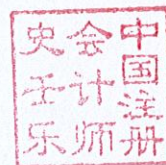 中国注册
会计师
史壬乐